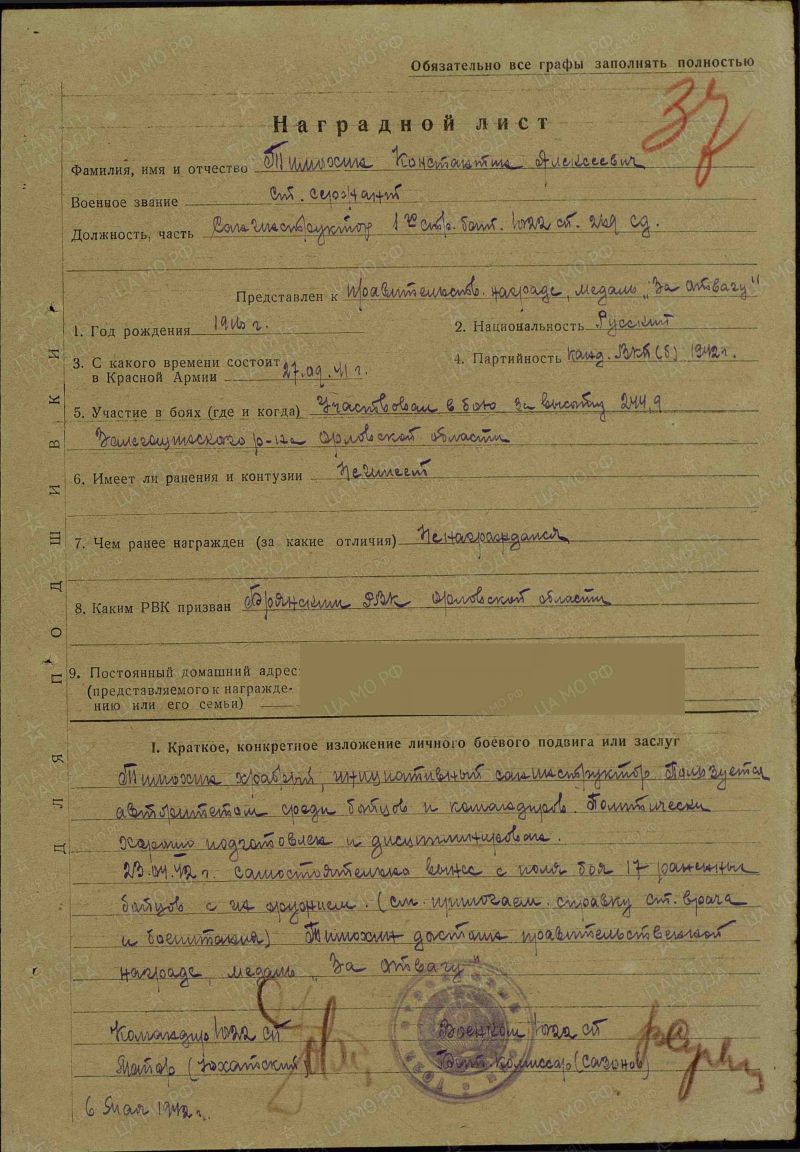 Обязательно все графы заполнять полностью
37
Наградной лист
Фамилия, имя и отчество Тимохин Константин Алексеевич
Военное звание ст. сержант
Должность, часть Санинструктор 1го стр. бат. 1022 сп. 269 сд.
Представлен к правительств. награде, медаль „За отвагу“
1. Год рождения
2. Национальность Русский
3. С какого времени состоит
в Красной Армии 27.09.41 г.
4. Партийность канд. ВКП(б) 1942 г.
5. Участие в боях (где и когда) Участвовал в бою за высоту 244,9
Залегощинского р-на Орловской области
6. Имеет ли ранения и контузии Не имеет
7. Чем ранее награжден (за какие отличия) Не награждался
8. Каким РВК призван Брянским РВК Орловской области
9. Постоянный домашний адрес:
(представляемого к награжде-
нию или его семьи)
I. Краткое, конкретное изложение личного боевого подвига или заслуг
Тимохин храбрый, инициативный санинструктор. Пользуется
авторитетом среди бойцов и командиров. Политически
хорошо подготовлен и дисциплинирован.
23.04.42 г. самостоятельно вынес с поля боя 17 раненных
бойцов с их оружием. (см. прилогаем. справку ст. врача
и боепитания) Тимохин достоин правительственной
награде, медаль „За отвагу“
Командир 1022 сп
Военком 1022 сп
Майор
Бат. Комиссар (Сазонов)
6 мая 1942 г.
ДЛЯ ПОДШИВКИ
ЦА МО РФ